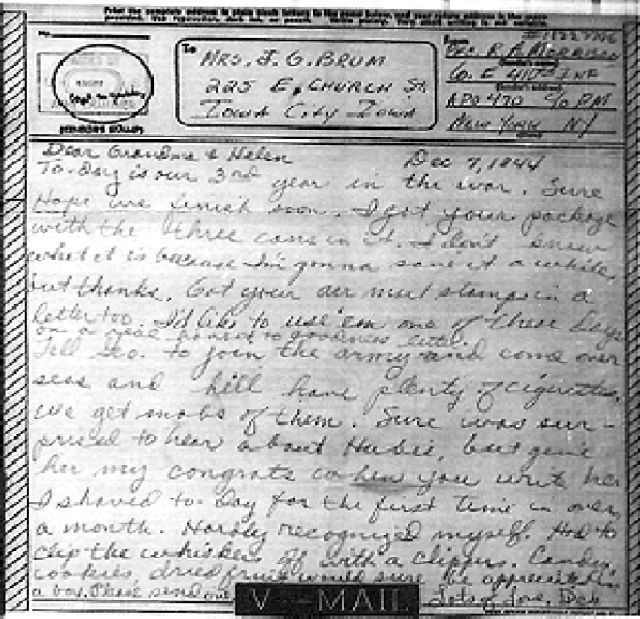 Print the complete address in plain block letters in the panel below, and your return address in the space provided.
No.
To
From
MRS. J. G. BRUM
225 E. CHURCH ST.
IOWA CITY IOWA
Co. E 410th INF
APO 470 c/o PM
NEW YORK NY
Dear Grandma & Helen
Dec 7, 1944
To-day is our 3rd year in the war. Sure
Hope we finish soon. I got your package
with the three cans in it. I don't know
what it is because I'm gonna save it a while,
but thanks. Got your air mail stamps in a
letter too. I'd like to use 'em one of these days
on a real honest to goodness letter.
Tell Geo. to join the army and come over
seas and hell have plenty of cigarettes.
We get mobs of them. Sure was sur-
prised to hear about Hubie, but give
her my congrats when you write her
I shaved to-day for the first time in over
a month. Hardly recognized myself. Had to
clip the whiskers off with a clippers. Candy,
cookies, dried fruit would sure be appreciated in
a box. Please send one. Lots of love, Bob
V···—MAIL